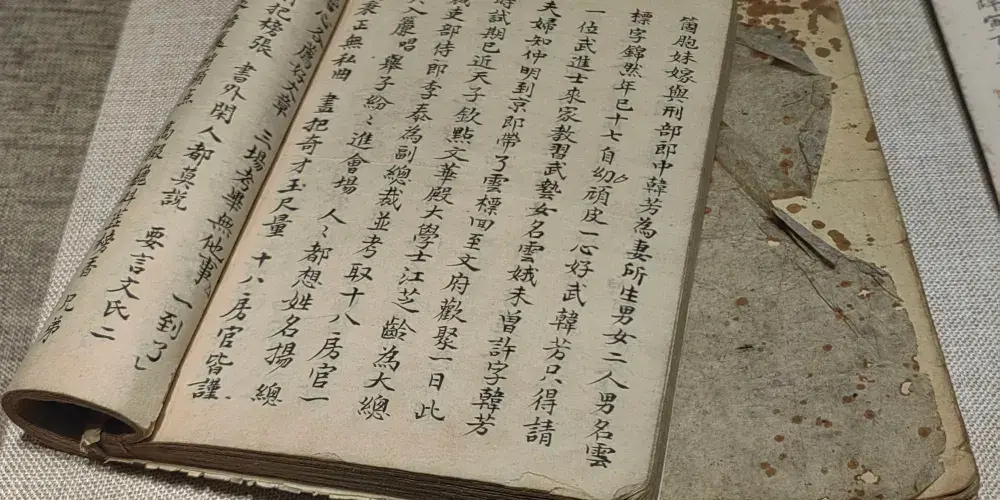 箇胞妹嫁與刑部郎中韓芳為妻所生男女二人男名雲
標字錦然年已十七自幼頑皮一心好武韓芳只得請
一位武進士來家教習武藝女名雲娥未曾許字韓芳
夫婦知仲明到京即帶了雲標回至文府歡聚一日此
時試期已近天子欽點文華殿大學士江芝齡為大總
裁吏部侍郎李泰為副總裁並考取十八房官一
入簾唱 舉子紛〻進會場 人〻都想姓名揚 總
秉正無私曲 盡把奇才玉尺量 十八房官皆謹
把榜張 書外閑人都莫說 要言文氏二
三場考畢無他事 一到了
兄弟